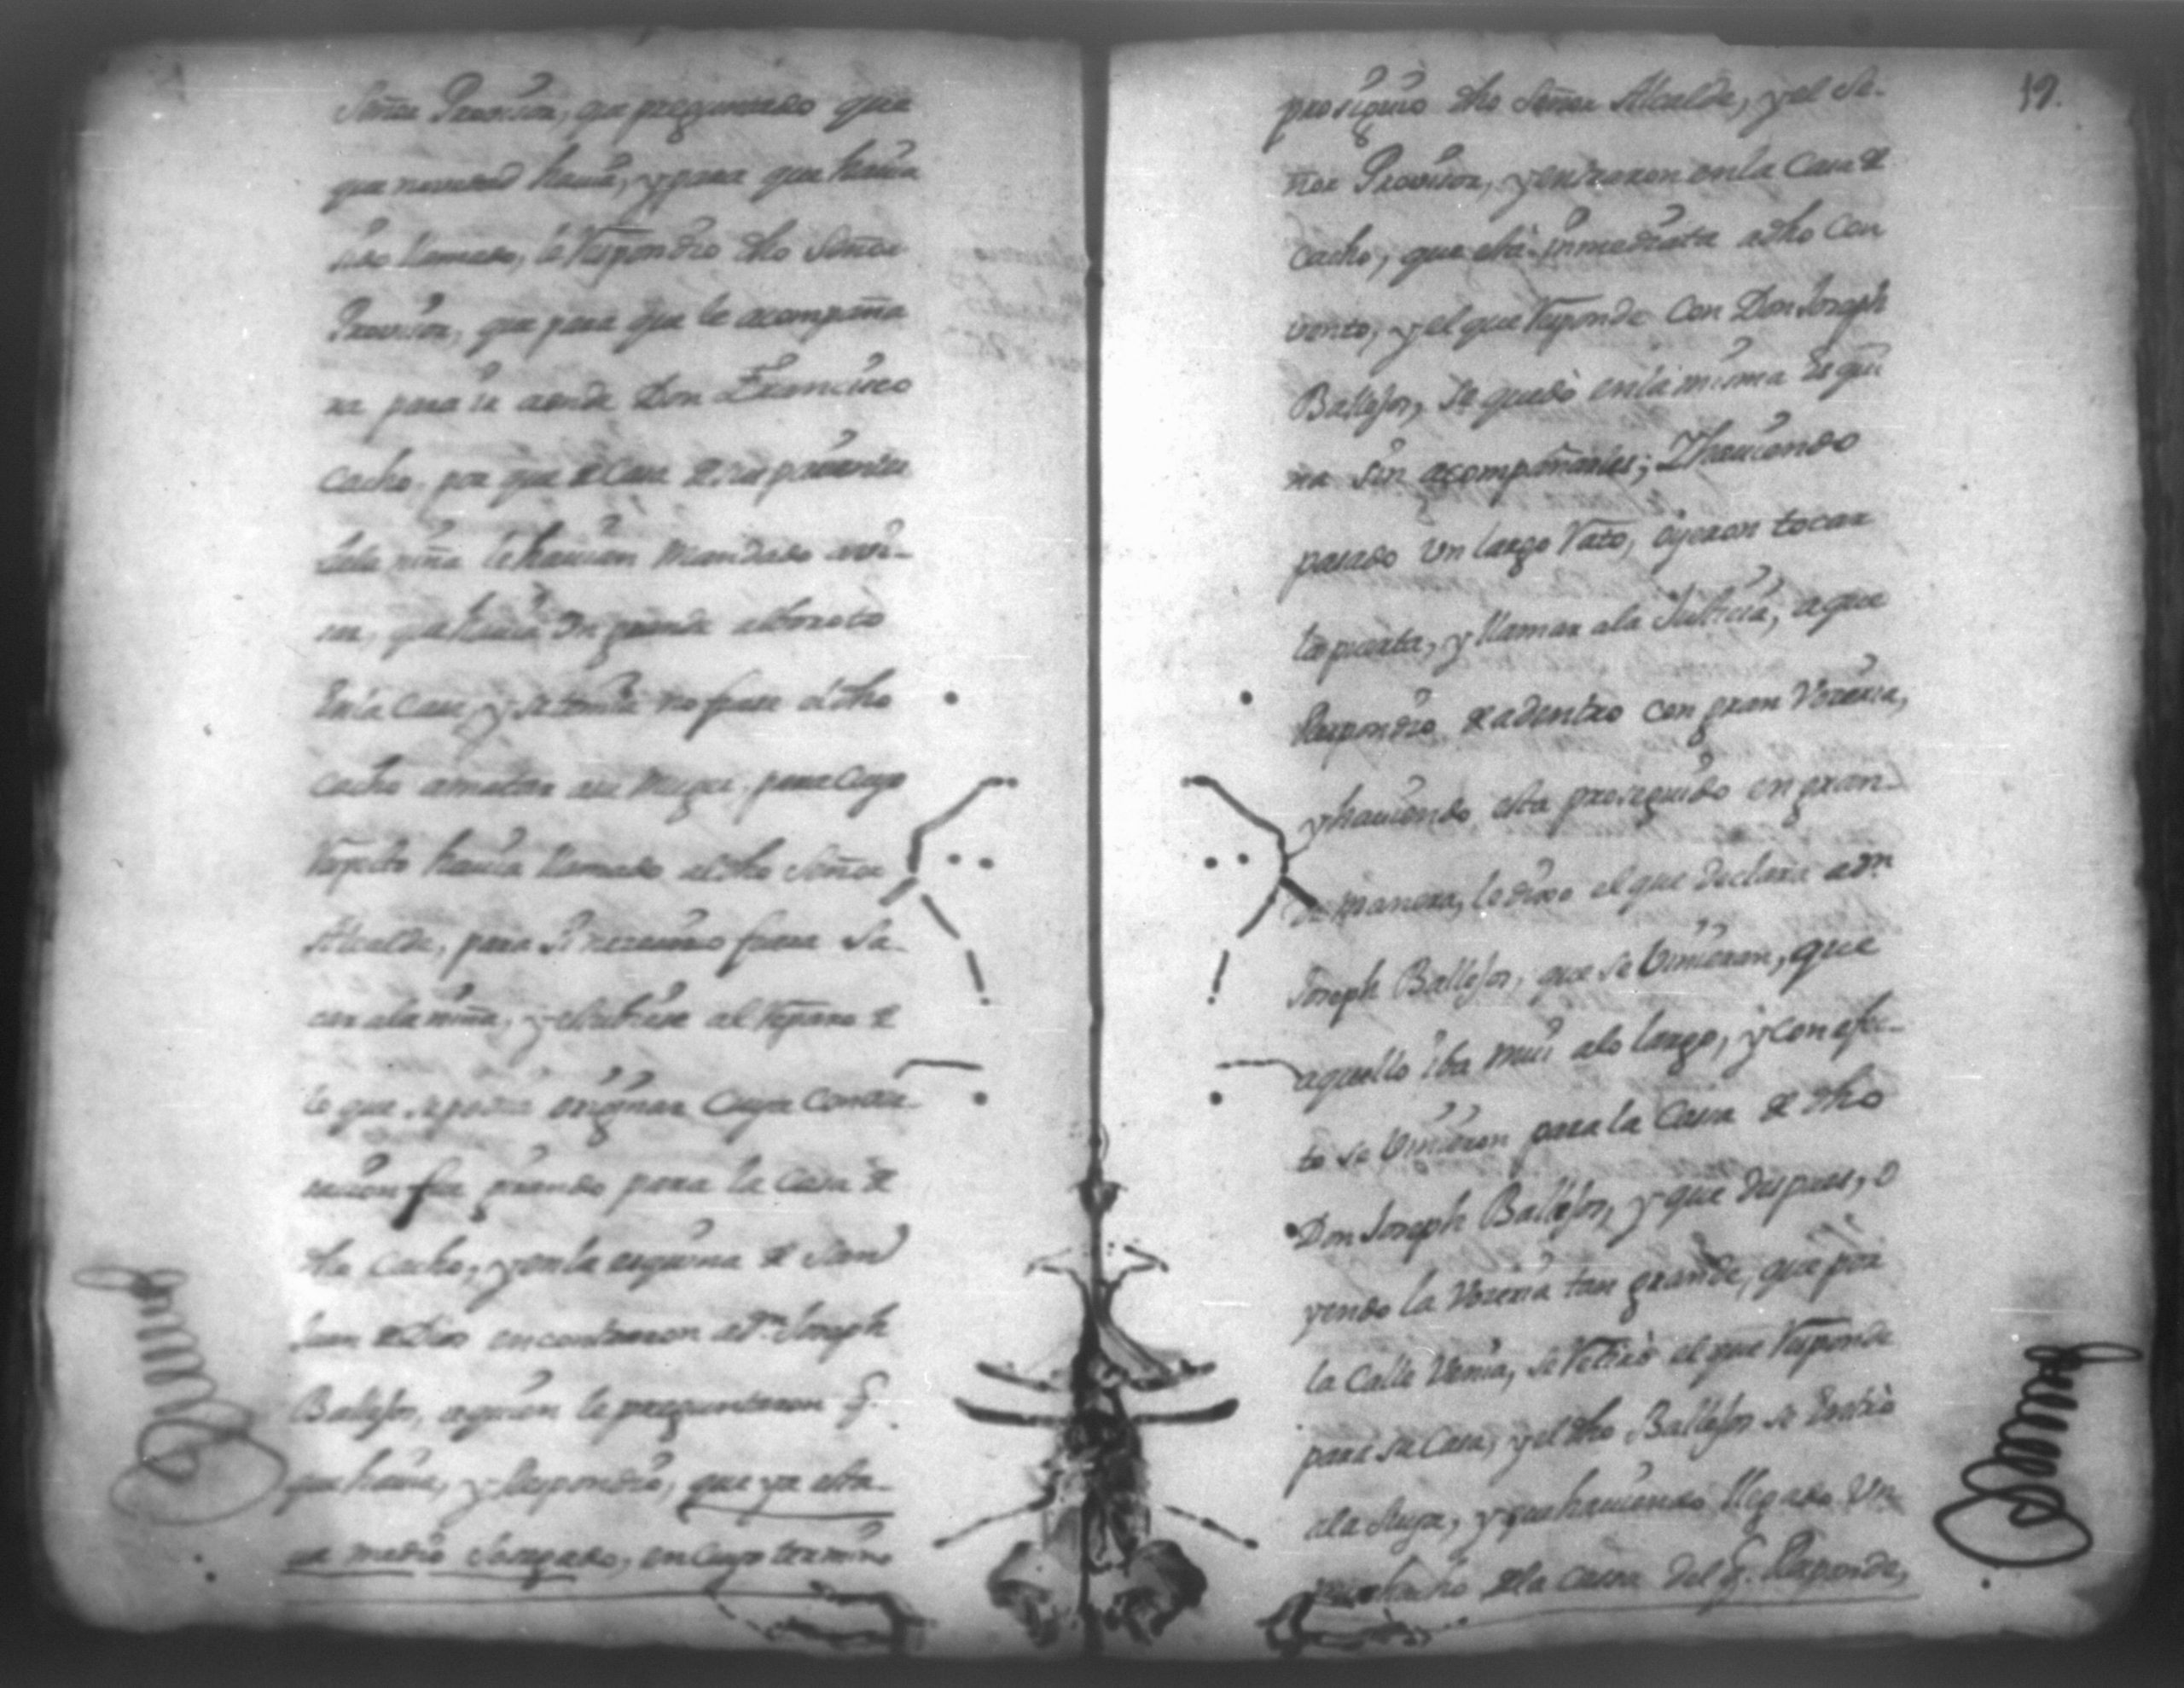 Señor Provisor, que preguntado que
que novedad havia, y para que havia
sido llamado, le Respondio dho Señor
Provisor, que para que le acompaña
ra para ir acasa Don Francisco
Cacho, por que de Casa de sus parientes
dela niña le havian mandado avi-
sar, que havia Un grande alboroto
En la Casa, y se temia no fuese el dho
Cacho amatar asu muger, para Cuyo
Respecto havia llamado al dho Señor
Alcalde, para Si nezesario fuera Sa-
car ala niña, y el reparo de
lo que se podia originar Cuya Conver-
sacion fue para la Casa de
dho Cacho, y en la esquina de San
Juan de Dios encontraron a Dn. Joseph
Ballejos, aquien le preguntaron q.
que havia, y Respondio, que ya esta-
va medio Sosegado, en Cuyo termino
19.
prosiguio dho Señor Alcalde, y el Se-
ñor Provisor, y entraron en la Casa de
Cacho, que està inmediata adho Con
vento, y el que Responde Con Don Joseph
Ballejos, se quedò en la misma Esqui
na sin acompañarles; Y haviendo
pasado Un largo Rato, oyeron tocar
la puerta, y llamar ala Justicia, aque
Respondio de adentro con gran Vozeria,
y haviendo esta proseguido en gran-
de manera, le dixo el que declara a Dn.
Joseph Ballejos, que se Vinieran, que
aquello iba mui alo largo, y con efec-
to se Vinieron para la Casa de dho
Don Joseph Ballejos, y que despues, o
yendo la Vozeria tan grande, que por
la Calle Venia, se Retirò el que Responde
para su Casa, y el dho Ballejos se Entrò
ala Suya, y que haviendo llegado Un
muchacho dela Casa del q. Responde,